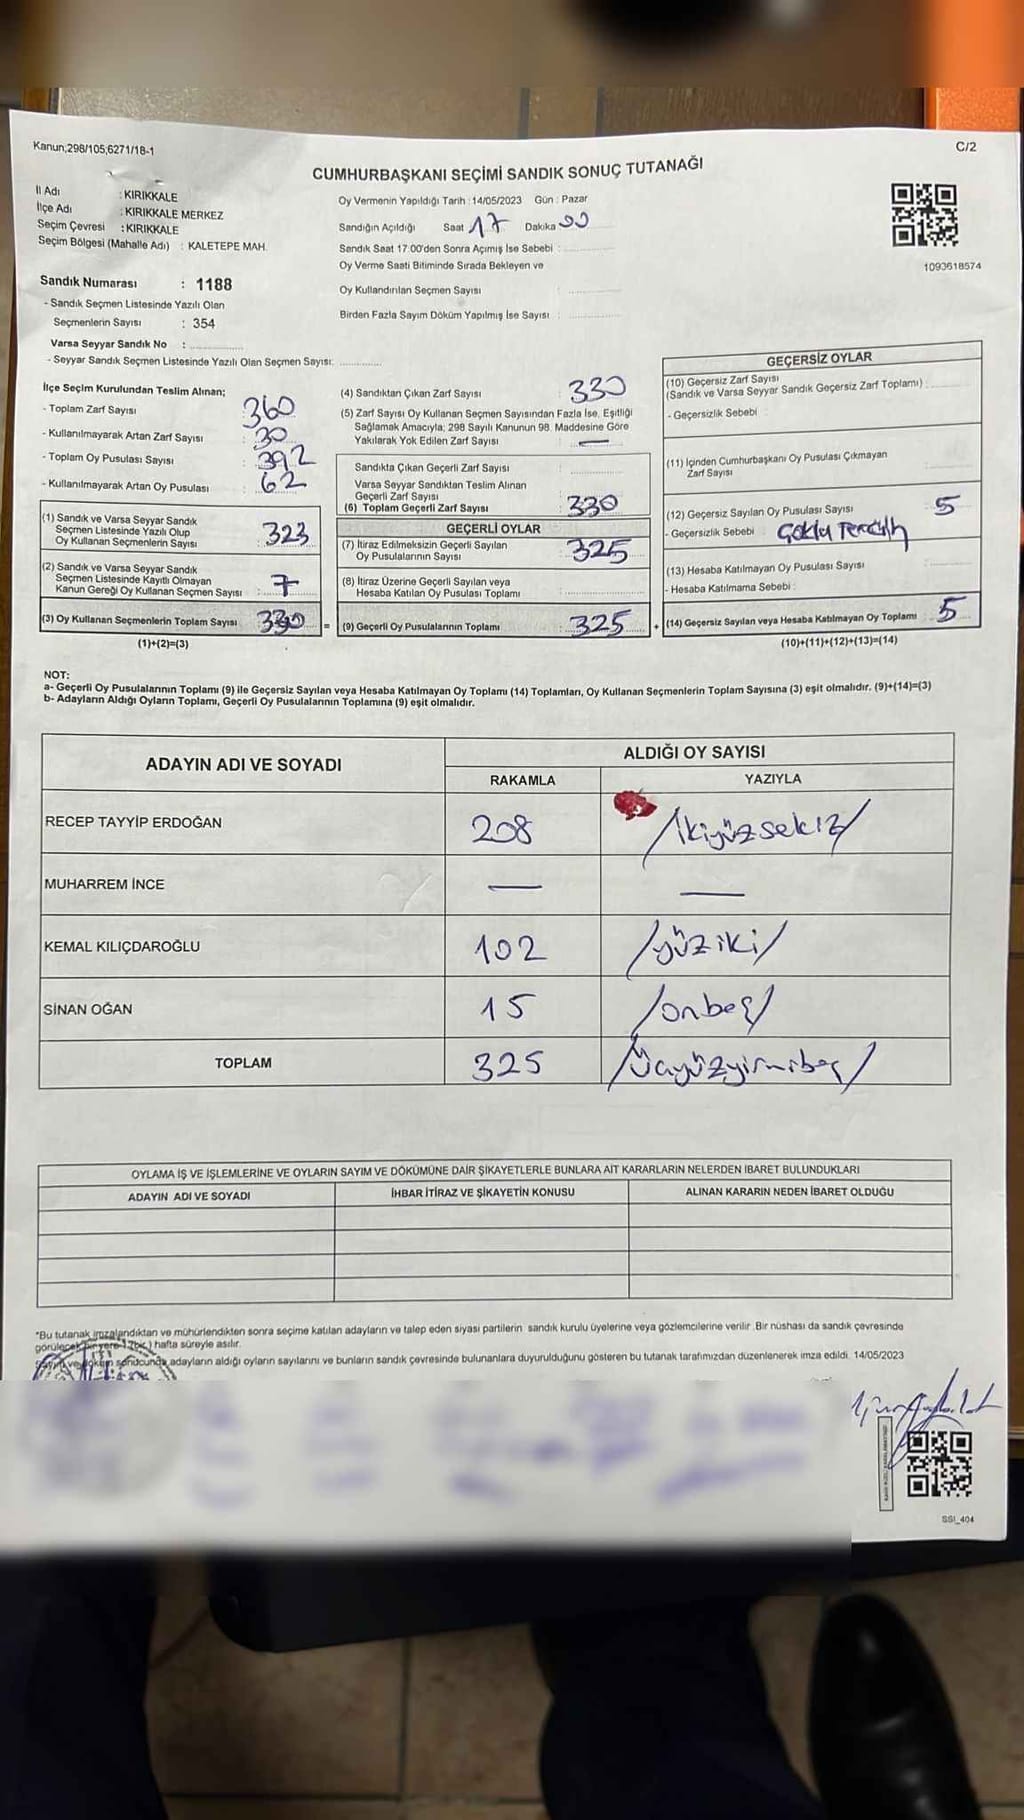 Kanun;298/105,6271/18-1
C/2
CUMHURBAŞKANI SEÇİMİ SANDIK SONUÇ TUTANAĞI
İl Adı : KIRIKKALE
İlçe Adı : KIRIKKALE MERKEZ
Seçim Çevresi : KIRIKKALE
Seçim Bölgesi (Mahalle Adı) : KALETEPE MAH.
Oy Vermenin Yapıldığı Tarih : 14/05/2023 Gün : Pazar
Sandığın Açıldığı Saat 17 Dakika 00
Sandık Saat 17:00'den Sonra Açımış İse Sebebi :
Oy Verme Saati Bitiminde Sırada Bekleyen ve
Oy Kullandırılan Seçmen Sayısı :
Birden Fazla Sayım Döküm Yapılmış İse Sayısı :
1093618574
Sandık Numarası : 1188
- Sandık Seçmen Listesinde Yazılı Olan
Seçmenlerin Sayısı : 354
Varsa Seyyar Sandık No :
- Seyyar Sandık Seçmen Listesinde Yazılı Olan Seçmen Sayısı:
İlçe Seçim Kurulundan Teslim Alınan;
- Toplam Zarf Sayısı : 360
- Kullanılmayarak Artan Zarf Sayısı : 30
- Toplam Oy Pusulası Sayısı : 392
- Kullanılmayarak Artan Oy Pusulası : 62
(1) Sandık ve Varsa Seyyar Sandık
Seçmen Listesinde Yazılı Olup
Oy Kullanan Seçmenlerin Sayısı : 323
(2) Sandık ve Varsa Seyyar Sandık
Seçmen Listesinde Kayıtlı Olmayan
Kanun Gereği Oy Kullanan Seçmen Sayısı : 7
(3) Oy Kullanan Seçmenlerin Toplam Sayısı : 330 =
(1)+(2)=(3)
(4) Sandıktan Çıkan Zarf Sayısı : 330
(5) Zarf Sayısı Oy Kullanan Seçmen Sayısından Fazla İse, Eşitliği
Sağlamak Amacıyla; 298 Sayılı Kanunun 98. Maddesine Göre
Yakılarak Yok Edilen Zarf Sayısı : —
Sandıkta Çıkan Geçerli Zarf Sayısı :
Varsa Seyyar Sandıktan Teslim Alınan
Geçerli Zarf Sayısı :
(6) Toplam Geçerli Zarf Sayısı : 330
GEÇERLİ OYLAR
(7) İtiraz Edilmeksizin Geçerli Sayılan
Oy Pusulalarının Sayısı : 325
(8) İtiraz Üzerine Geçerli Sayılan veya
Hesaba Katılan Oy Pusulası Toplamı :
(9) Geçerli Oy Pusulalarının Toplamı : 325 +
GEÇERSİZ OYLAR
(10) Geçersiz Zarf Sayısı
(Sandık ve Varsa Seyyar Sandık Geçersiz Zarf Toplamı) :
- Geçersizlik Sebebi :
(11) İçinden Cumhurbaşkanı Oy Pusulası Çıkmayan
Zarf Sayısı :
(12) Geçersiz Sayılan Oy Pusulası Sayısı : 5
- Geçersizlik Sebebi : Çoklu Tercih
(13) Hesaba Katılmayan Oy Pusulası Sayısı :
- Hesaba Katılmama Sebebi :
(14) Geçersiz Sayılan veya Hesaba Katılmayan Oy Toplamı : 5
(10)+(11)+(12)+(13)=(14)
NOT:
a- Geçerli Oy Pusulalarının Toplamı (9) ile Geçersiz Sayılan veya Hesaba Katılmayan Oy Toplamı (14) Toplamları, Oy Kullanan Seçmenlerin Toplam Sayısına (3) eşit olmalıdır. (9)+(14)=(3)
b- Adayların Aldığı Oyların Toplamı, Geçerli Oy Pusulalarının Toplamına (9) eşit olmalıdır.
ADAYIN ADI VE SOYADI
ALDIĞI OY SAYISI
RAKAMLA YAZIYLA
RECEP TAYYİP ERDOĞAN 208 /ikiyüzsekiz/
MUHARREM İNCE — —
KEMAL KILIÇDAROĞLU 102 /yüziki/
SİNAN OĞAN 15 /onbeş/
TOPLAM 325 /üçyüzyirmibeş/
OYLAMA İŞ VE İŞLEMLERİNE VE OYLARIN SAYIM VE DÖKÜMÜNE DAİR ŞİKAYETLERLE BUNLARA AİT KARARLARIN NELERDEN İBARET BULUNDUKLARI
ADAYIN ADI VE SOYADI İHBAR İTİRAZ VE ŞİKAYETİN KONUSU ALINAN KARARIN NEDEN İBARET OLDUĞU
*Bu tutanak imzalandıktan ve mühürlendikten sonra seçime katılan adayların ve talep eden siyasi partilerin sandık kurulu üyelerine veya gözlemcilerine verilir. Bir nüshası da sandık çevresinde
görülecek bir yere 1 (bir) hafta süreyle asılır.
Sayım ve döküm sonucunda, adayların aldığı oyların sayılarını ve bunların sandık çevresinde bulunanlara duyurulduğunu gösteren bu tutanak tarafımızdan düzenlenerek imza edildi. 14/05/2023
SSI_404